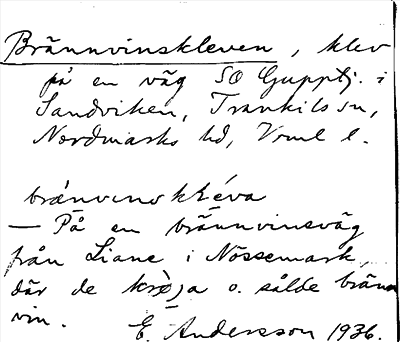 Brännvinskleven, klev
på en väg SO Gupptj. i
Sandviken, Trankils sn,
Nordmarks hd, Vrml l.
brǽnvinskléva
— På en brännvinsväg
från Liane i Nössemark,
där de körde o. sålde bränn
vin. E. Andersson 1936.